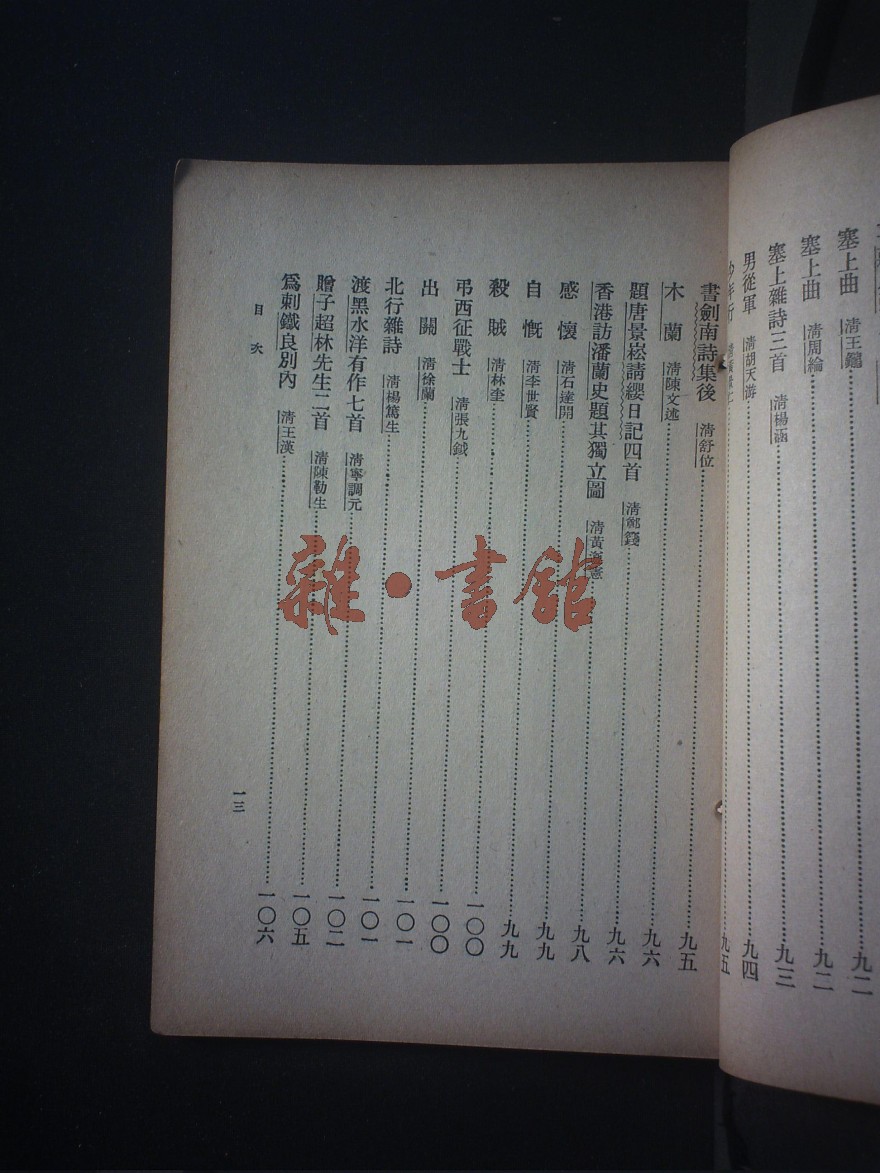 塞上曲 清王鑨 九二
塞上曲 清周綸 九二
塞上雜詩三首 清楊涵 九三
男從軍 清胡天游 九四
年行 九五
書劍南詩集後 清舒位 九五
木蘭 清陳文述 九六
題唐景崧請纓日記四首 清鄭 九六
香港訪潘蘭史題其獨立圖 清黃遵憲 九八
感懷 清石達開 九九
自慨 清李世賢 九九
殺賊 清林奎 一〇〇
弔西征戰士 清張九鉞 一〇〇
出關 清徐蘭 一〇一
北行雜詩 清楊篤生 一〇一
渡黑水洋有作七首 清寧調元 一〇二
贈子超林先生二首 清陳勒生 一〇五
爲刺鐵良別內 清王漢 一〇六
目次
一三
雜·書館